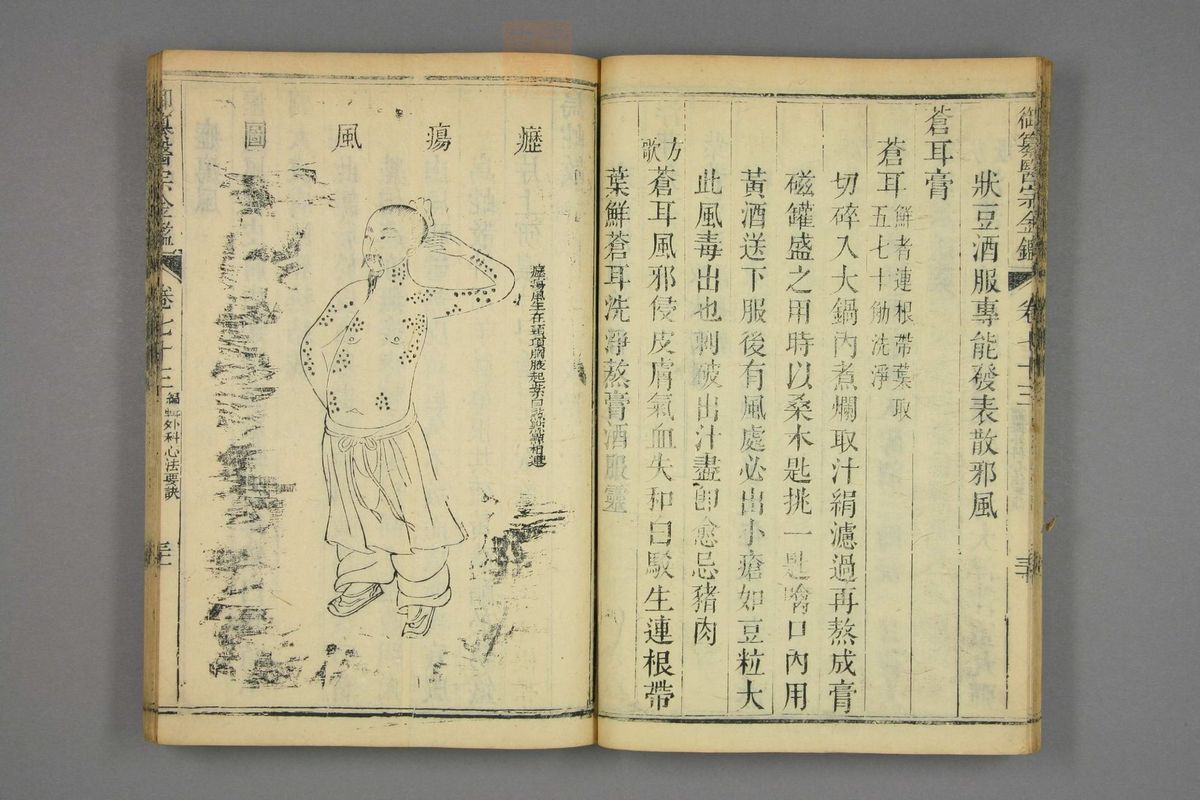 御纂醫宗金鑑 卷七十三
狀豆酒服專能發表散邪風
蒼耳膏
蒼耳鮮者連根帶葉取
五七十觔洗淨
切碎入大鍋內煮爛取汁絹濾過再熬成膏
磁罐盛之用時以桑木匙挑一匙噙口內用
黃酒送下服後有風處必出小瘡如豆粒大
此風毒出也刺破出汁盡即愈忌豬肉
方歌
蒼耳風邪侵皮膚氣血失和白駁生連根帶
葉鮮蒼耳洗淨蒸膏酒服靈
癧瘍風圖
癧瘍風生在頸項胸腋起紫白點點點相連
醫宗金鑑 卷七十三 編輯外科心法要訣